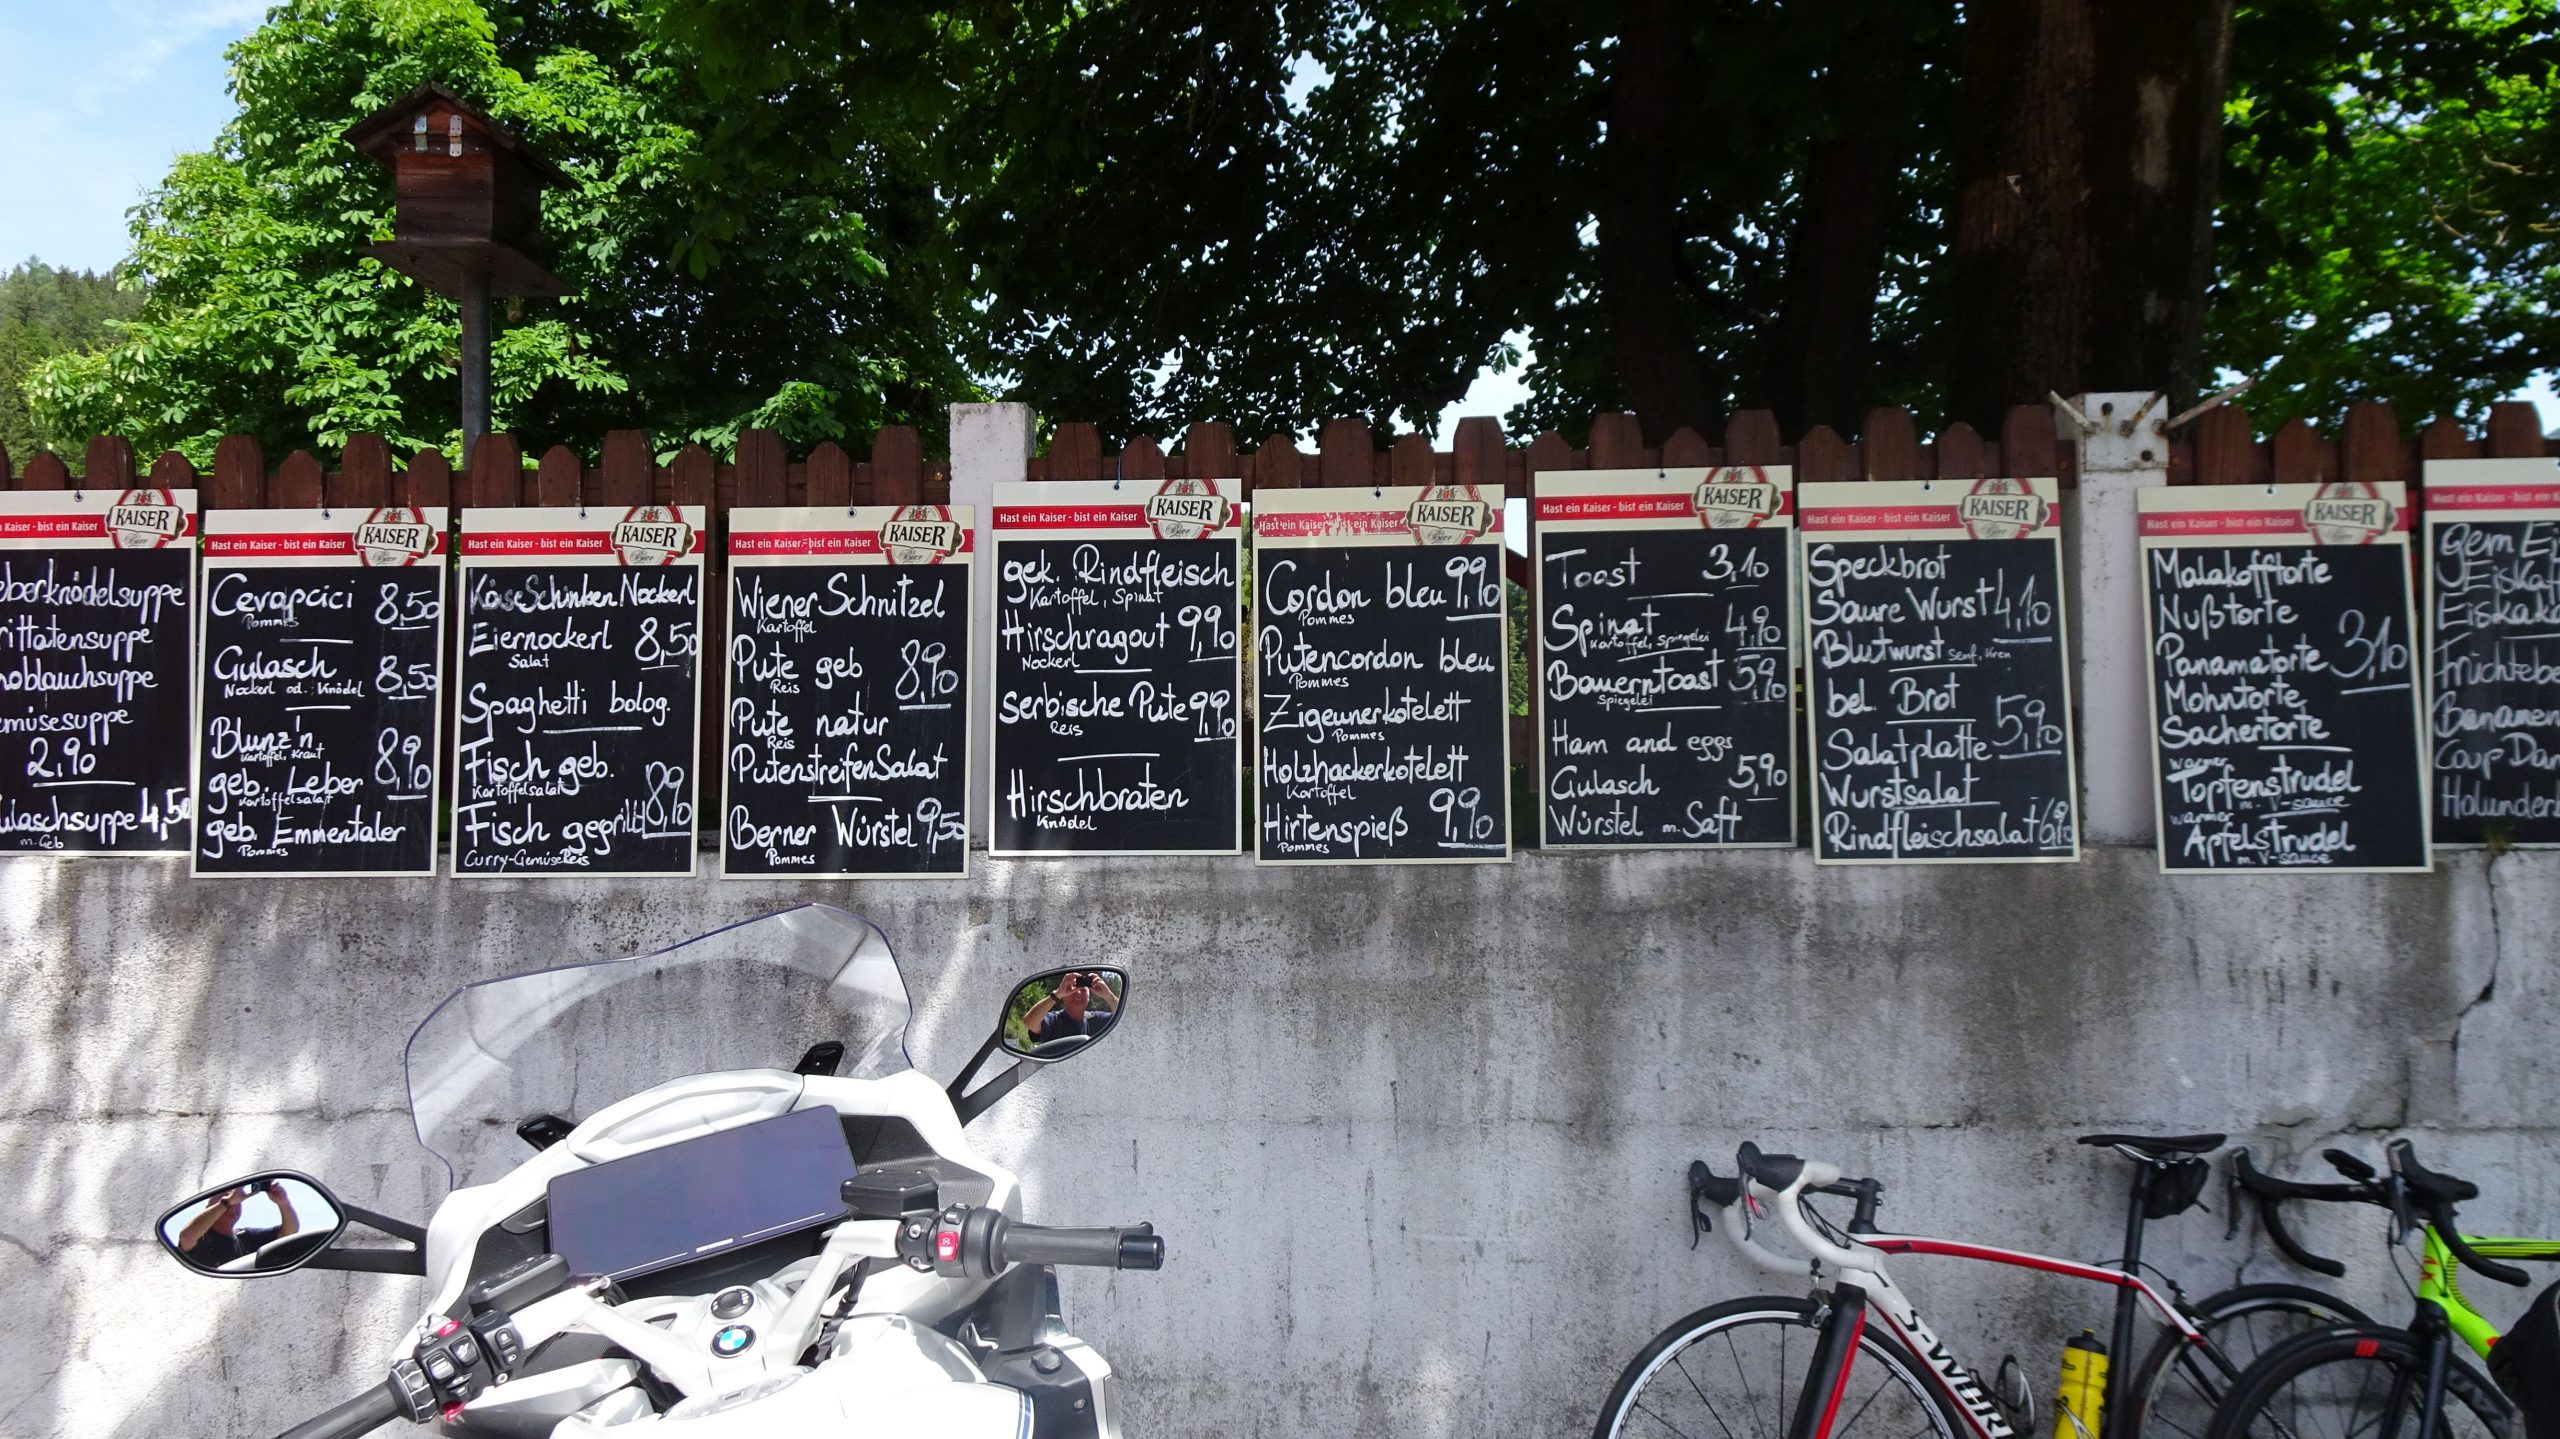 Kaiser - bist ein Kaiser KAISER
eberknödelsuppe
rittatensuppe
noblauchsuppe
emüsesuppe
2,90
ulaschsuppe 4,50
m. Geb
Hast ein Kaiser - bist ein Kaiser KAISER Bier
Cevapcici 8,50
Pommes
Gulasch 8,50
Nockerl od. Knödel
Blunz'n 8,90
Kartoffel, Kraut
geb. Leber
Kartoffelsalat
geb. Emmentaler
Pommes
Hast ein Kaiser - bist ein Kaiser KAISER Bier
Käse Schinken Nockerl
Eiernockerl 8,50
Salat
Spaghetti bolog.
Fisch geb.
Kartoffelsalat
Fisch gegrillt 8,90
Curry-Gemüse Reis
Hast ein Kaiser - bist ein Kaiser KAISER Bier
Wiener Schnitzel
Kartoffel
Pute geb 8,90
Reis
Pute natur
Reis
Putenstreifen Salat
Berner Würstel 9,50
Pommes
Hast ein Kaiser - bist ein Kaiser KAISER Bier
gek. Rindfleisch
Kartoffel, Spinat
Hirschragout 9,90
Nockerl
Serbische Pute 9,90
Reis
Hirschbraten
Knödel
Hast ein Kaiser - bist ein Kaiser KAISER Bier
Cordon bleu 9,90
Pommes
Putencordon bleu
Pommes
Zigeunerkotelett
Pommes
Holzhackerkotelett
Kartoffel
Hirtenspieß 9,90
Pommes
Hast ein Kaiser - bist ein Kaiser KAISER Bier
Toast 3,10
Spinat 4,90
Kartoffel, Spiegelei
Bauerntoast 5,90
Spiegelei
Ham and eggs
Gulasch 5,90
Würstel m. Saft
Hast ein Kaiser - bist ein Kaiser KAISER Bier
Speckbrot
Saure Wurst 4,10
Blutwurst Senf, Kren
bel. Brot
Salatplatte 5,90
Wurstsalat
Rindfleischsalat 6,90
Hast ein Kaiser - bist ein Kaiser KAISER Bier
Malakofftorte
Nußtorte
Panamatorte 3,10
Mohntorte
Sachertorte
warmer
Topfenstrudel
m. V-sauce
warmer
Apfelstrudel
m. V-sauce
Hast ein Kaiser - bist ein K
gem Ei
Eiskaf
Eiskaka
Früchtebe
Bananen
Coup Dan
Holunder
S-WOR